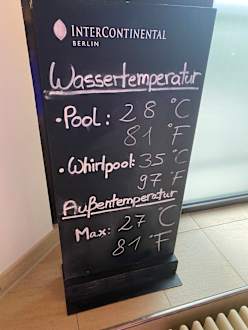 INTERCONTINENTAL
BERLIN
Wassertemperatur
• Pool: 28 °C
81 °F
• Whirlpool: 35 °C
97 °F
Außentemperatur
Max: 27 °C
81 °F